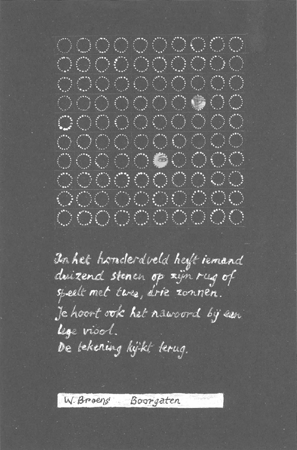 In het honderdveld heeft iemand
duizend stenen op zijn rug of
speelt met twee, drie zonnen.
Je hoort ook het nawoord bij een
lege viool.
De tekening kijkt terug.
W. Broens Boorgaten